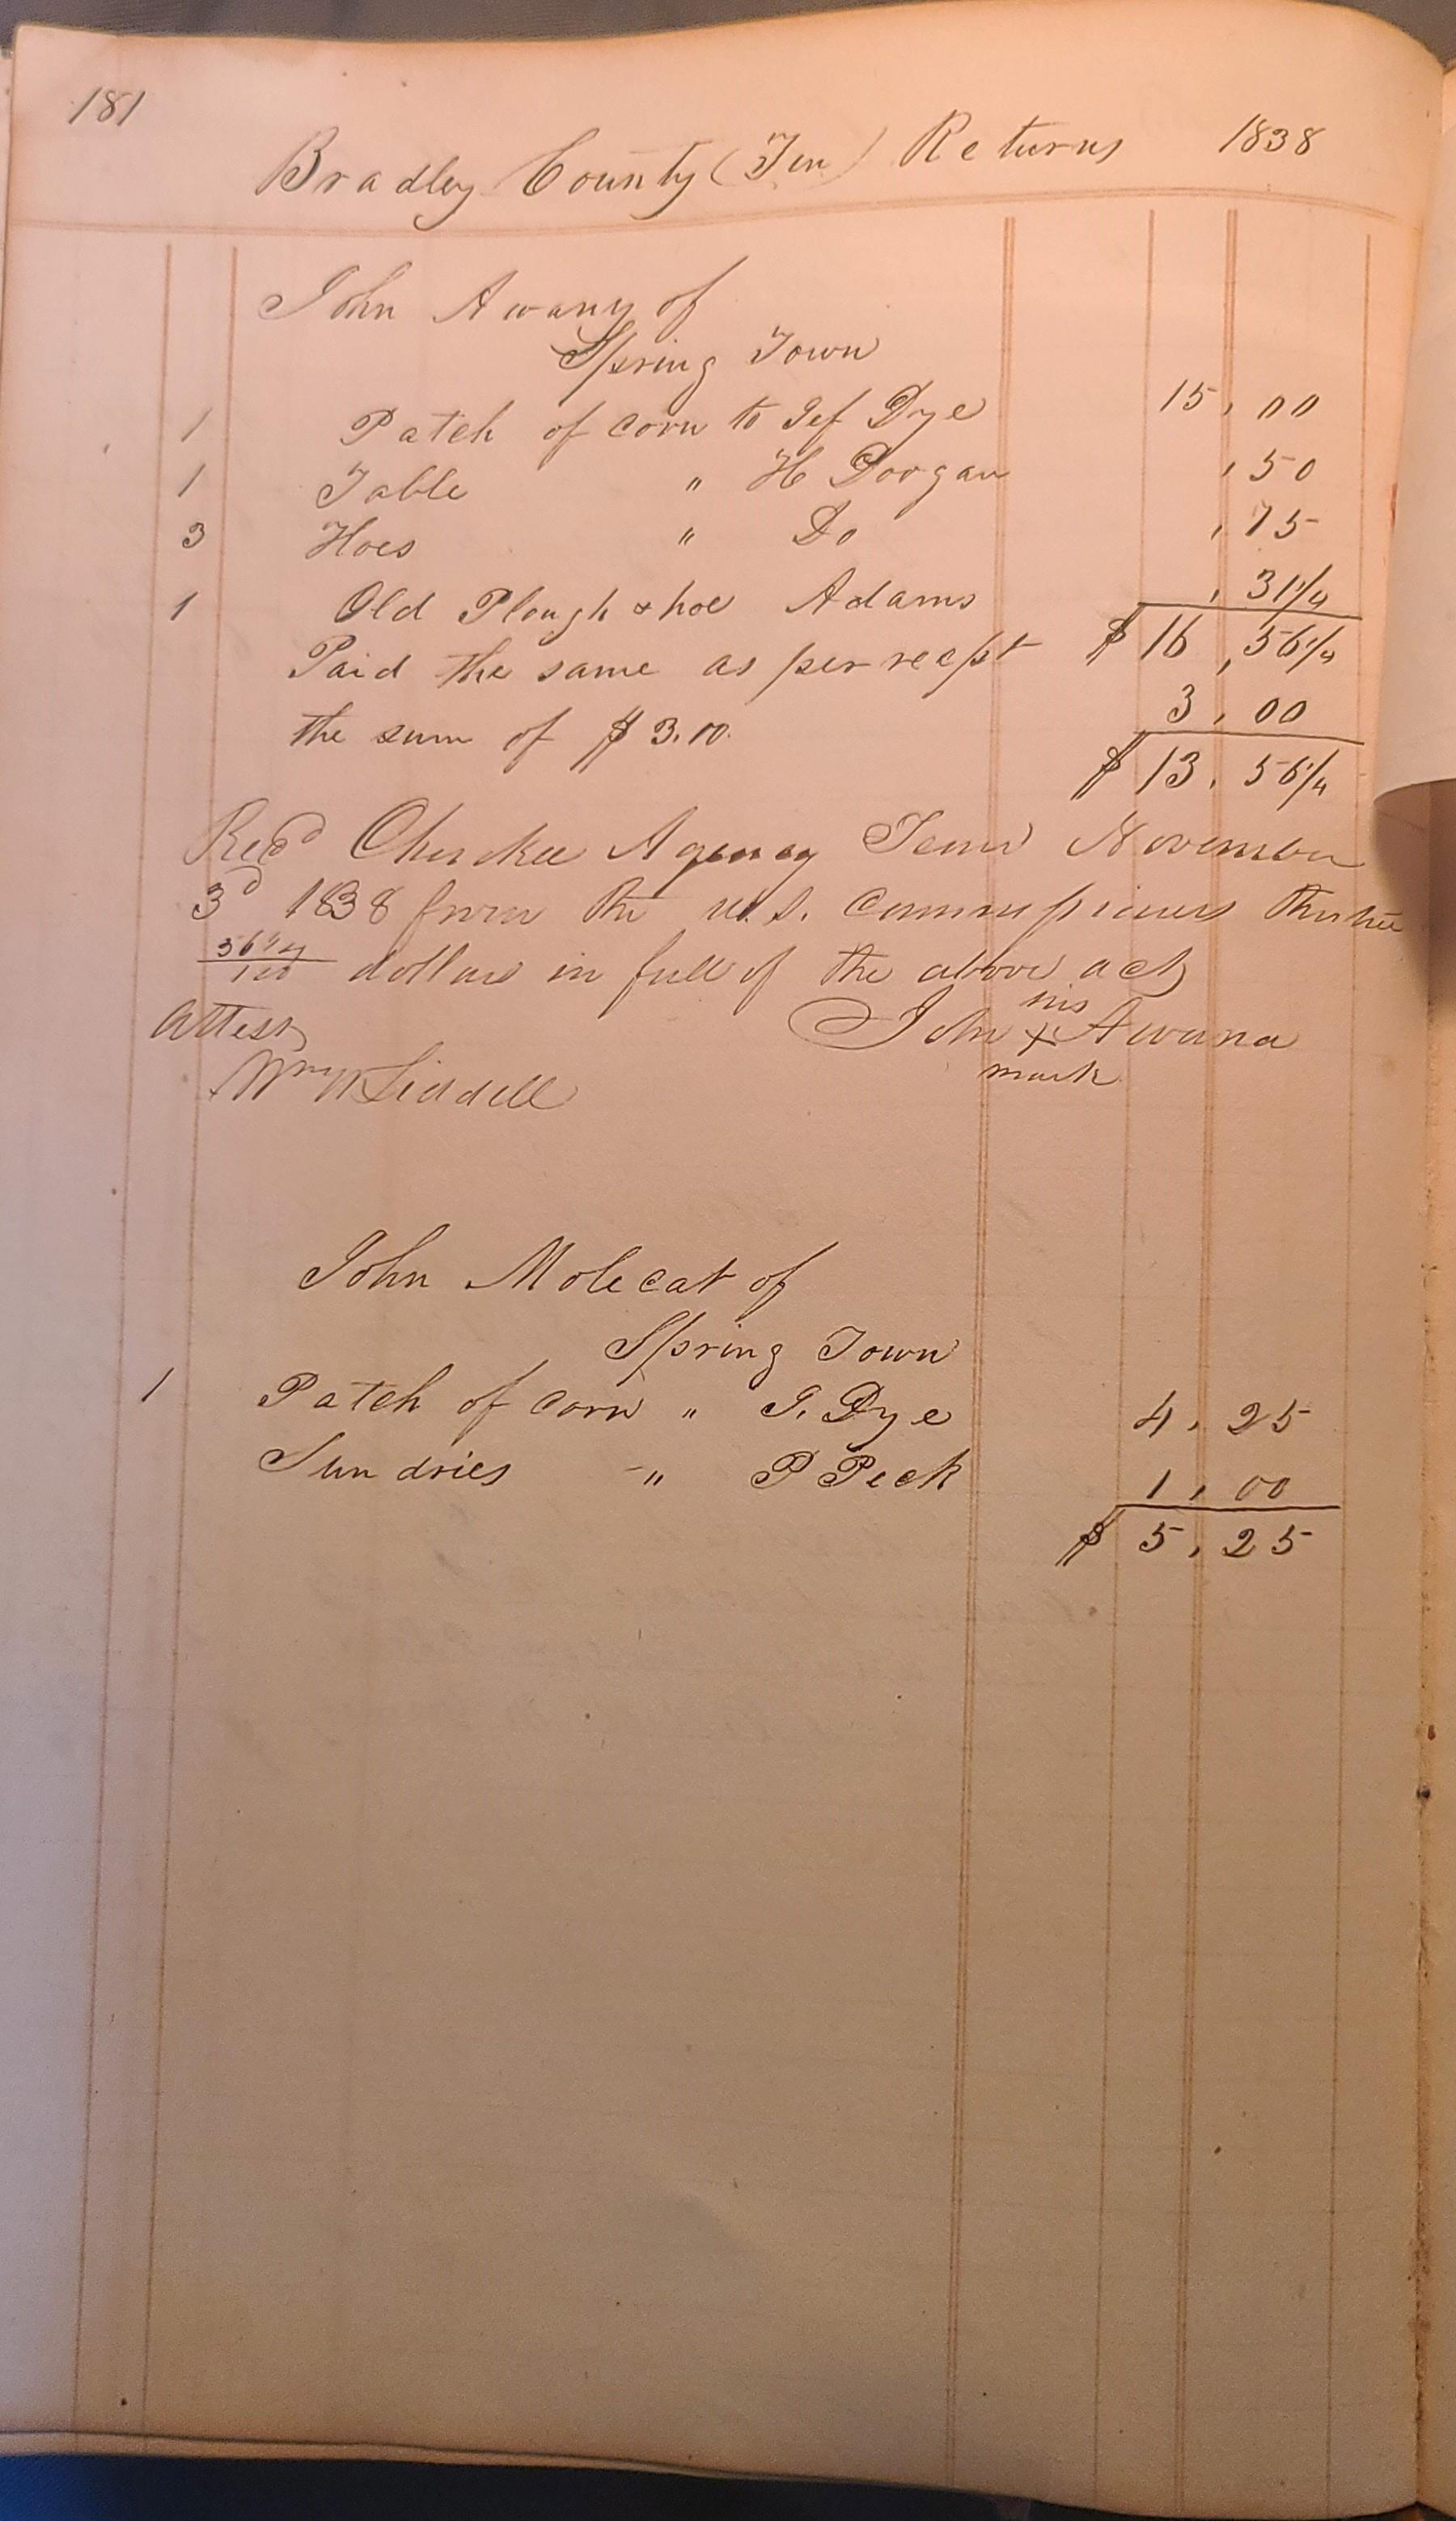 181
Bradley County (Ten) Returns 1838
John Awany of
Spring Town
1 Patch of corn to Jef Dye 15,00
1 Table " H Doogan ,50
3 Hoes " Do ,75
1 Old Plough & hoe Adams ,31 1/4
Paid the same as per recpt $16,56 1/4
the sum of $3.00. 3,00
$13,56 1/4
Recd Cherokee Agency Tenn November
3d 1838 from the U.S. Commissioners thirteen
56 1/4/100 dollars in full of the above act
Attest John his x mark Awana
Wm W Liddell
John Molecat of
Spring Town
1 Patch of corn " J. Dye 4,25
Sundries " P Peck 1,00
$5,25